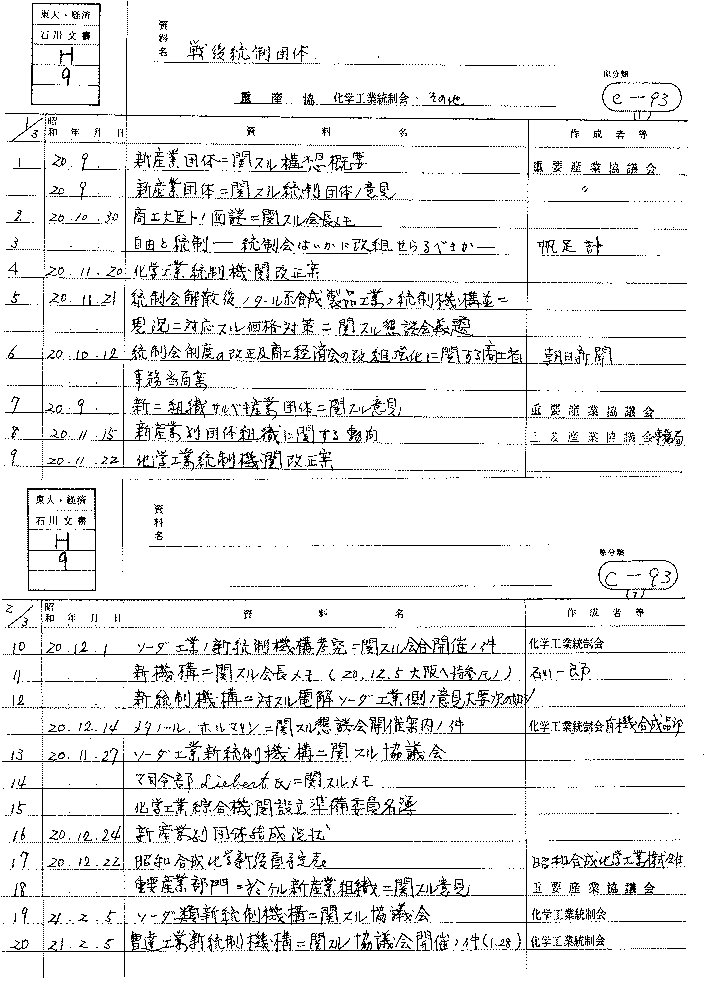 東大・経済
石川文書
H
9
資料名 戦後統制団体
重産協 化学工業統制会・その他
原分類
C-93
(1)
1/3 昭和 年 月 日 資料名 作成者等
1 20.9. 新産業団体ニ関スル構想概要 重要産業協議会
20 9. 新産業団体ニ関スル統制団体ノ意見 〃
2 20.10.30 商工大臣トノ面談ニ関スル会長メモ
3 自由と統制―統制会はいかに改組せらるべきか― 帆足計
4 20.11.20 化学工業統制機関改正案
5 20.11.21 統制会解散後ノタール系合成製品工業ノ統制機構並ニ
現況ニ対応スル価格対策ニ関スル懇談会議題
6 20.10.12 統制会制度の改正及商工経済会の改組強化に関する商工省 朝日新聞
事務当局案
7 20.9. 新ニ組織サルベキ産業団体ニ関スル意見 重要産業協議会
8 20.11.15 新産業別団体組織に関する動向 重要産業協議会事務局
9 20.11.22 化学工業統制機関改正案
東大・経済
石川文書
H
9
資料名
原分類
C-93
2/3 昭和 年 月 日 資料名 作成者等
10 20.12.1 ソーダ工業ノ新統制機構考究ニ関スル会合開催ノ件 化学工業統制会
11 新機構ニ関スル会長メモ(20.12.5大阪ヘ持参 石川一郎
12 新統制機構ニ対スル電解ソーダ工業側ノ意見大要次の如シ
20.12.14 メタノール、ホルマリンニ関スル懇談会開催案内ノ件 化学工業統制会有機合成品部
13 20.11.27 ソーダ工業新統制機構ニ関スル協議会
14 司令部Liebert氏ニ関スルメモ
15 化学工業綜合機関設立準備委員名簿
16 20.12.24 新産業別団体結成状況
17 20.12.22 昭和合成化学新役員予定表 昭和合成化学工業株式会社
18 重要産業部門ニ於ケル新産業組織ニ関スル意見 重要産業協議会
19 21.2.5 ソーダ類新統制機構ニ関スル協議会 化学工業統制会
20 21.2.5 曹達工業新統制機構ニ関スル協議会開催ノ件(1.28) 化学工業統制会